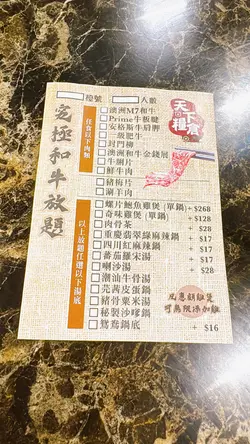 檯號 人數
天下
糧倉
究極和牛放題
任食以下肉類
澳洲M7和牛
Prime牛板腱
安格斯牛肩脚
一級肥牛
封門柳
澳洲和牛金錢𦟌
牛脷片
鮮牛肉
豬梅片
涮羊肉
以上放題任選以下湯底
螺片鮑魚雞煲 (單鍋) + $268
奇味雞煲 (單鍋) + $128
肉骨茶 + $28
重慶翡翠綠麻辣鍋 + $17
四川紅麻辣鍋 + $17
蕃茄羅宋湯 + $17
喇沙湯 + $28
潮汕牛骨湯
芫茜皮蛋鍋
豬骨粟米湯
秘製沙嗲鍋
鴛鴦鍋底 + $16
凡惠顧雞煲
可無限添加雞